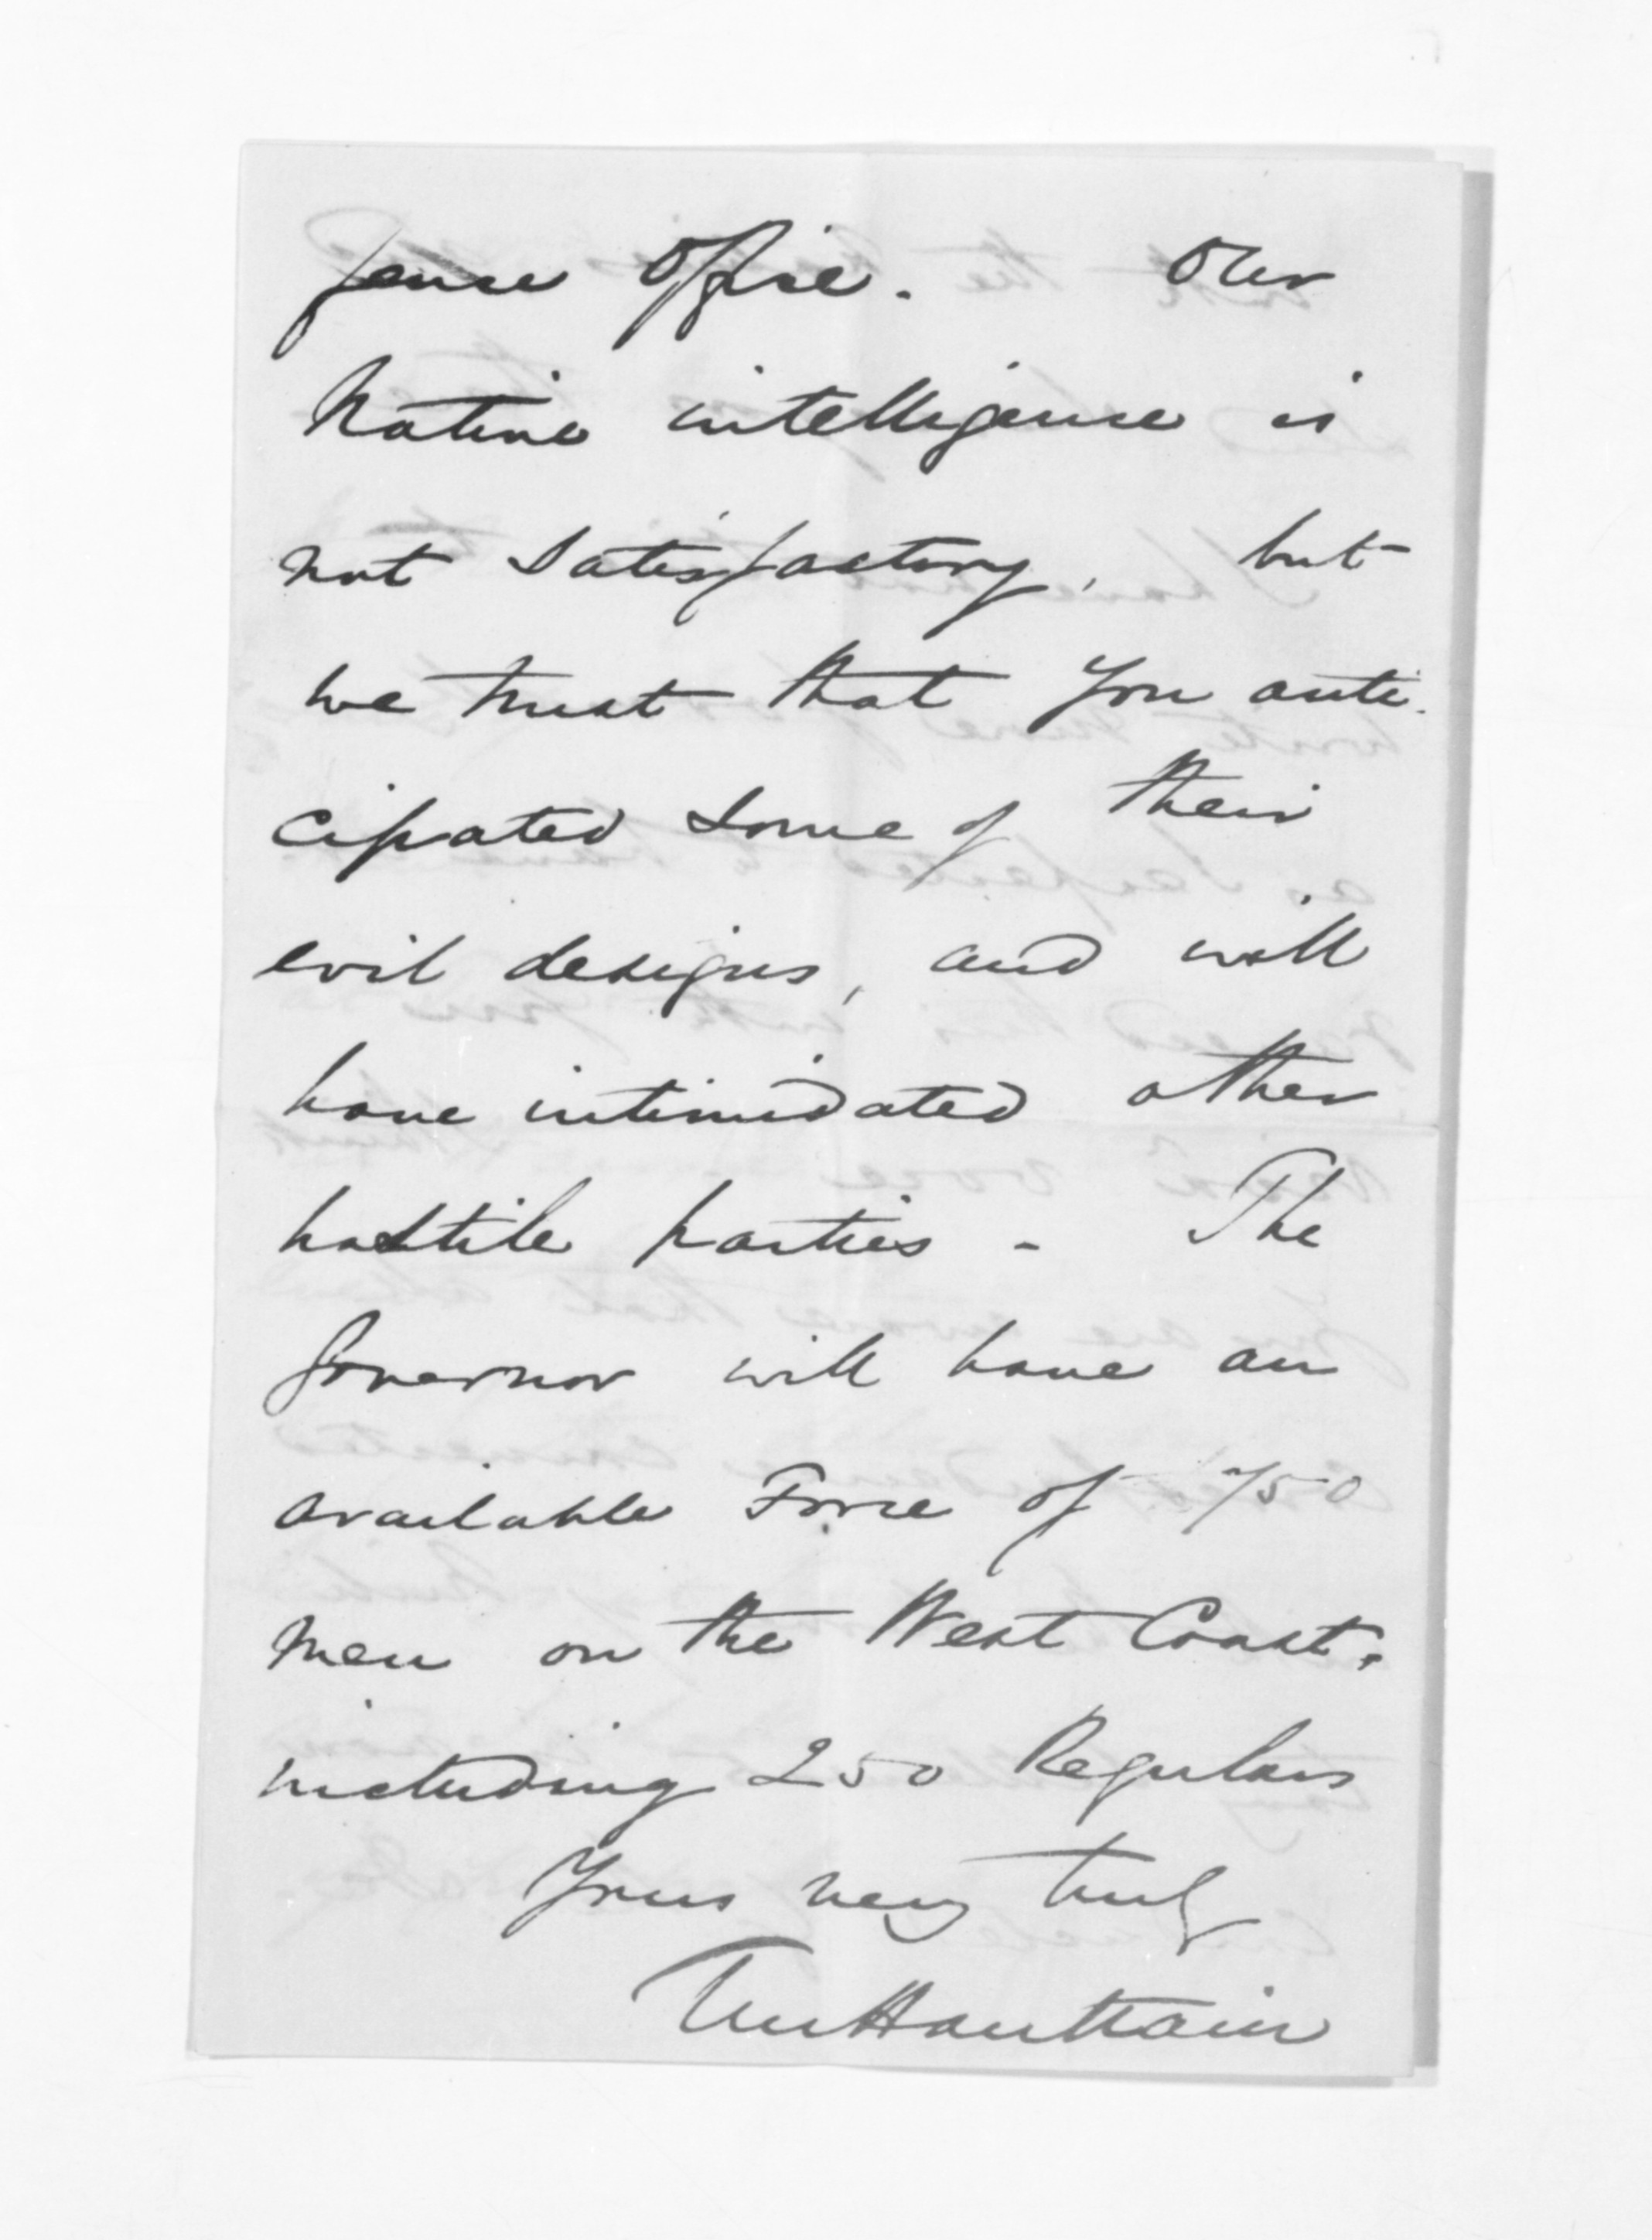 fence Office. Our
Native intelligence is
not satisfactory, but
we trust that you anti-
cipated some of their
evil designs, and will
have intimidated other
hostile parties - The
Governor will have an
available Force of 750
men on the West Coast,
including 250 Regulars
Yours very truly
TM Haultain